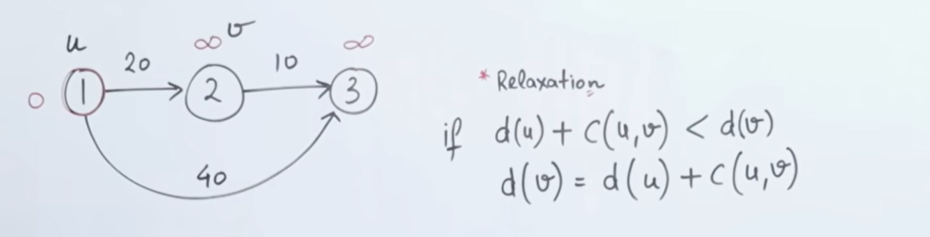 u
∞ v
∞
20
10
0
1
2
3
40
* Relaxation
if d(u) + C(u,v) < d(v)
d(v) = d(u) + C(u,v)